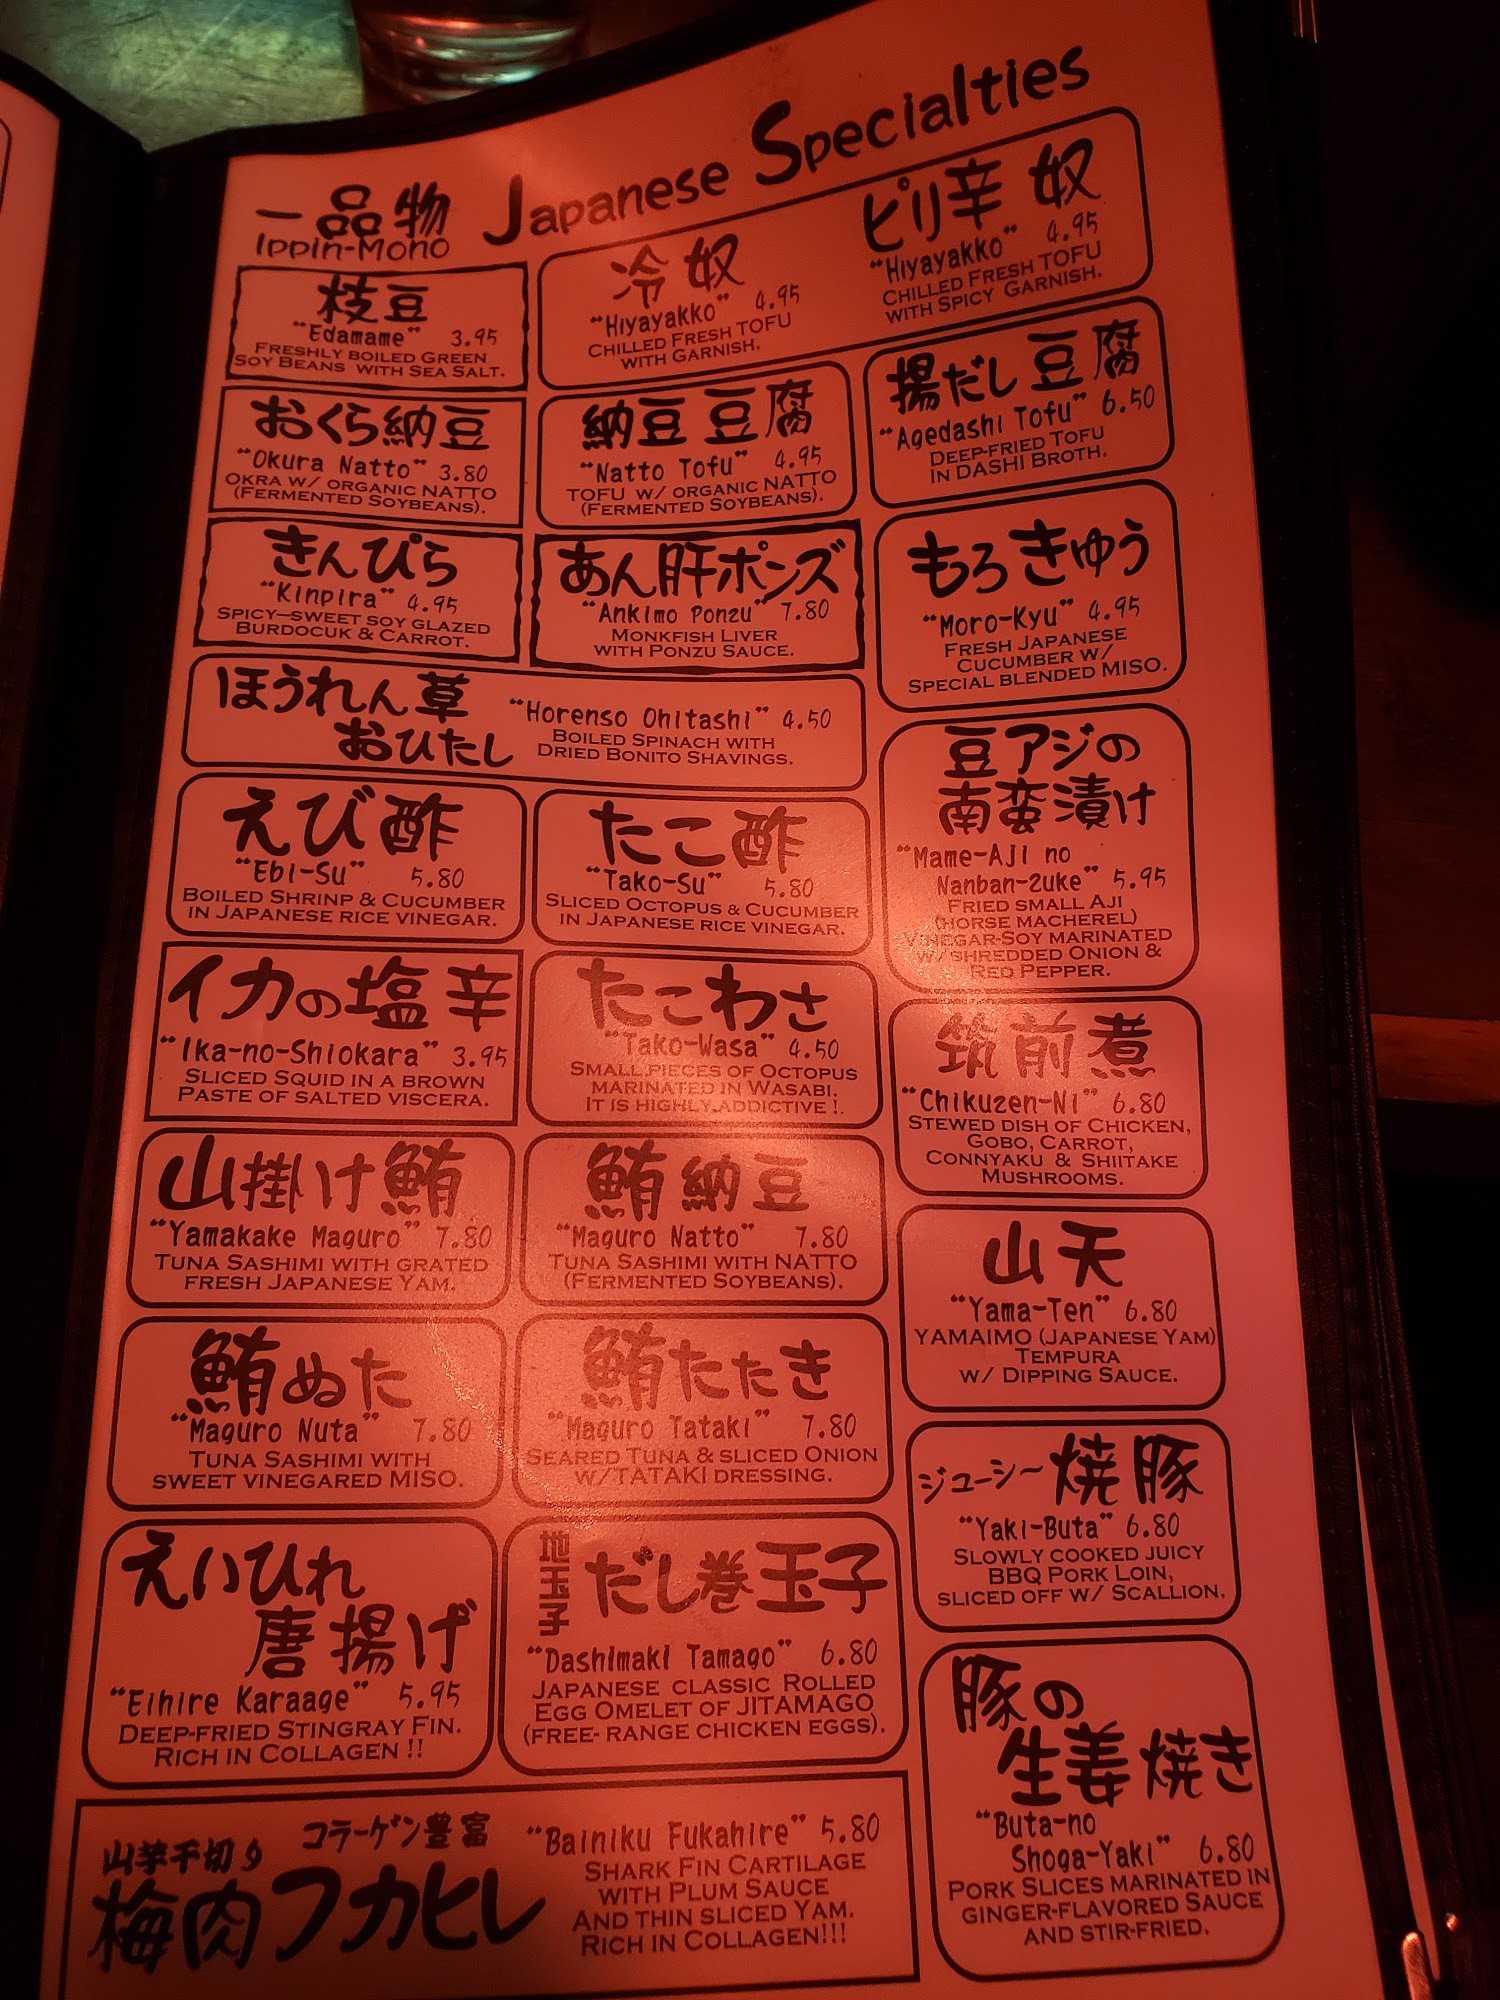 一品物
Ippin-Mono
Japanese Specialties
枝豆
"Edamame" 3.95
Freshly boiled Green
Soy Beans with Sea Salt.
冷奴
"Hiyayakko" 4.95
Chilled Fresh TOFU
with Garnish.
ピリ辛奴
"Hiyayakko" 4.95
Chilled Fresh TOFU
with Spicy Garnish.
おくら納豆
"Okura Natto" 3.80
Okra w/ organic NATTO
(Fermented Soybeans).
納豆豆腐
"Natto Tofu" 4.95
TOFU w/ organic NATTO
(Fermented Soybeans).
揚だし豆腐
"Agedashi Tofu" 6.50
Deep-fried Tofu
in DASHI Broth.
きんぴら
"Kinpira" 4.95
spicy-sweet soy glazed
Burdocuk & Carrot.
あん肝ポンズ
"Ankimo Ponzu" 7.80
Monkfish Liver
with Ponzu Sauce.
もろきゅう
"Moro-Kyu" 4.95
Fresh Japanese
Cucumber w/
special blended MISO.
ほうれん草
おひたし
"Horenso Ohitashi" 4.50
Boiled Spinach with
Dried Bonito Shavings.
豆アジの
南蛮漬け
"Mame-Aji no
Nanban-zuke" 5.95
Fried small Aji
(horse macherel)
vinegar-Soy marinated
w/ shredded Onion &
Red Pepper.
えび酢
"Ebi-Su" 5.80
Boiled Shrinp & Cucumber
in Japanese rice vinegar.
たこ酢
"Tako-Su" 5.80
Sliced Octopus & Cucumber
in Japanese rice vinegar.
イカの塩辛
"Ika-no-Shiokara" 3.95
Sliced Squid in a brown
Paste of salted viscera.
たこわさ
"Tako-Wasa" 4.50
Small pieces of Octopus
marinated in Wasabi.
It is highly addictive !.
筑前煮
"Chikuzen-Ni" 6.80
Stewed dish of Chicken,
Gobo, Carrot,
Connyaku & Shiitake
Mushrooms.
山掛け鮪
"Yamakake Maguro" 7.80
Tuna Sashimi with grated
fresh Japanese Yam.
鮪納豆
"Maguro Natto" 7.80
Tuna Sashimi with NATTO
(Fermented Soybeans).
山天
"Yama-Ten" 6.80
YAMAIMO (Japanese Yam)
Tempura
w/ Dipping Sauce.
鮪ぬた
"Maguro Nuta" 7.80
Tuna Sashimi with
sweet vinegared MISO.
鮪たたき
"Maguro Tataki" 7.80
Seared Tuna & sliced Onion
w/TATAKI dressing.
ジューシー焼豚
"Yaki-Buta" 6.80
Slowly cooked juicy
BBQ Pork Loin,
sliced off w/ Scallion.
えいひれ
唐揚げ
"Eihire Karaage" 5.95
Deep-fried Stingray Fin.
Rich in Collagen !!
地玉子
だし巻玉子
"Dashimaki Tamago" 6.80
Japanese classic Rolled
Egg Omelet of JITAMAGO
(free- range chicken eggs).
豚の
生姜焼き
"Buta-no
Shoga-Yaki" 6.80
Pork Slices marinated in
ginger-flavored Sauce
and stir-fried.
山芋千切り コラーゲン豊富
梅肉フカヒレ
"Bainiku Fukahire" 5.80
Shark Fin Cartilage
with Plum Sauce
And thin sliced Yam.
Rich in Collagen!!!